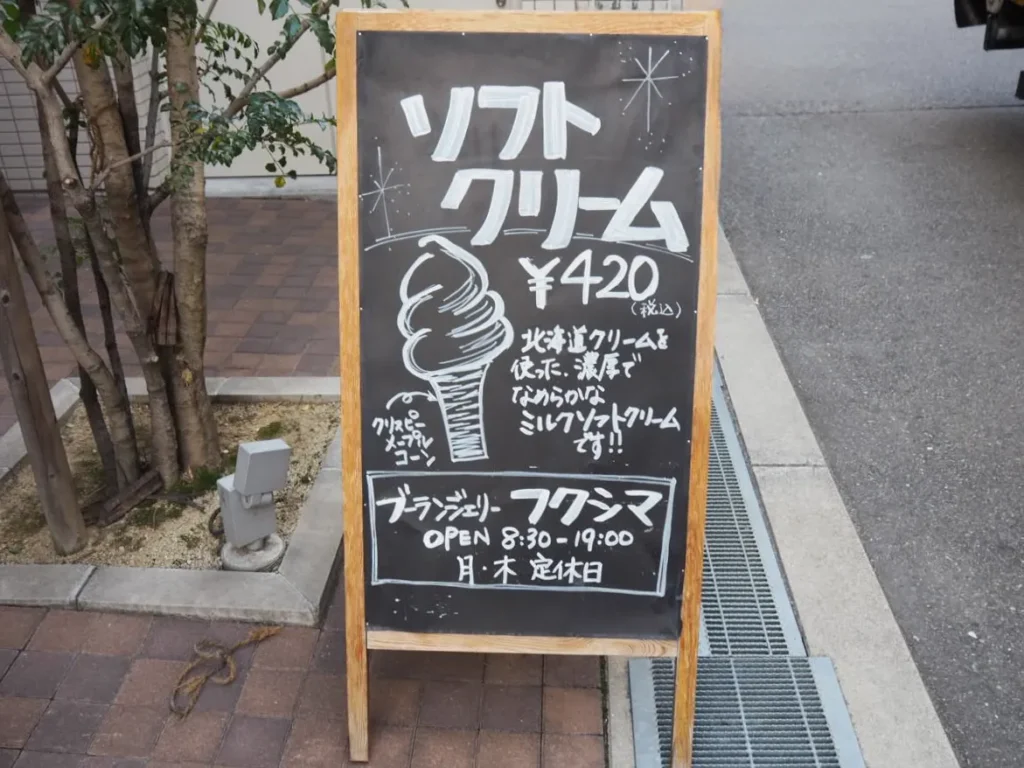 ソフト
クリーム
¥420
(税込)
北海道クリームを
使った、濃厚で
なめらかな
ミルクソフトクリーム
です!!
クリスピー
メープル
コーン
ブーランジェリー フクシマ
OPEN 8:30-19:00
月・木 定休日